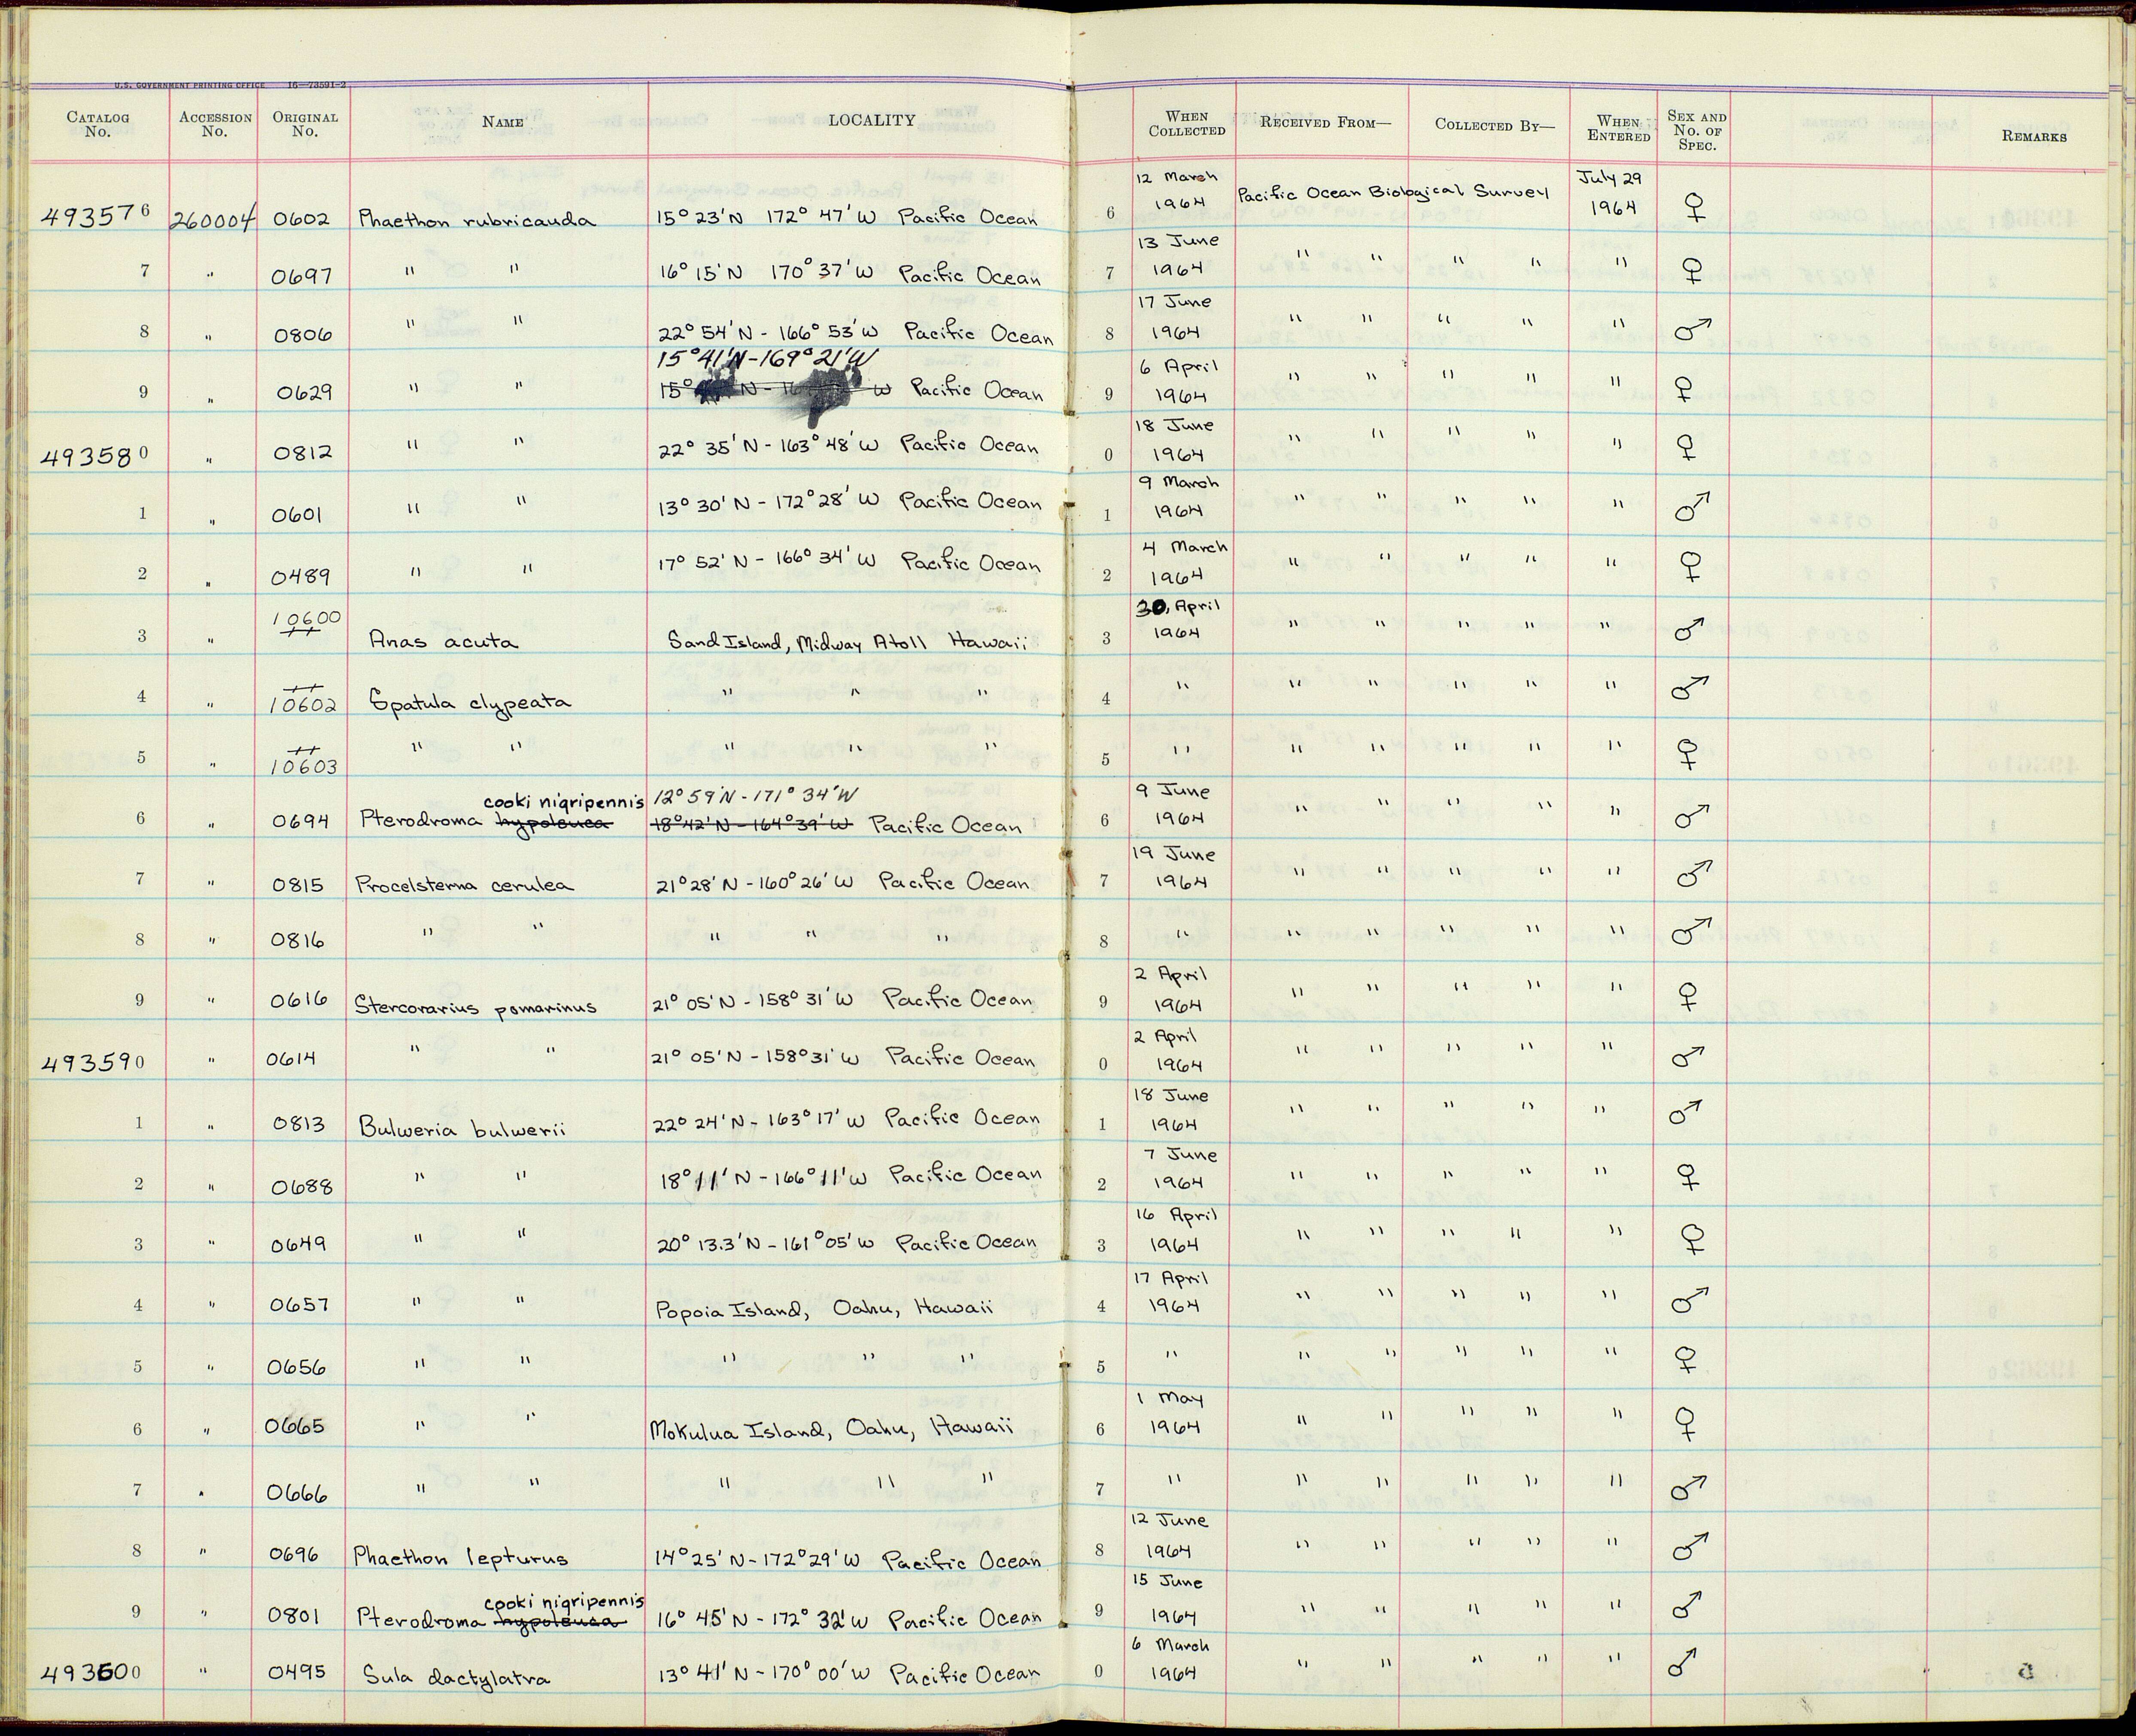 U.S. GOVERNMENT PRINTING OFFICE 16—73591-2
CATALOG No. ACCESSION No. ORIGINAL No. NAME LOCALITY WHEN COLLECTED RECEIVED FROM— COLLECTED BY— WHEN ENTERED SEX AND No. OF SPEC. REMARKS
493576 260004 0602 Phaethon rubricauda 15° 23' N 172° 47' W Pacific Ocean 6 12 March 1964 Pacific Ocean Biological Survey July 29 1964 ♀
7 " 0697 " " 16° 15' N 170° 37' W Pacific Ocean 7 13 June 1964 " " " " " ♀
8 " 0806 " " 22° 54' N - 166° 53' W Pacific Ocean 8 17 June 1964 " " " " " ♂
15° 41' N - 169° 21' W
9 " 0629 " " 15° N - 16 W Pacific Ocean 9 6 April 1964 " " " " " ♀
493580 " 0812 " " 22° 35' N - 163° 48' W Pacific Ocean 0 18 June 1964 " " " " " ♀
1 " 0601 " " 13° 30' N - 172° 28' W Pacific Ocean 1 9 March 1964 " " " " " ♂
2 " 0489 " " 17° 52' N - 166° 34' W Pacific Ocean 2 4 March 1964 " " " " " ♀
3 " 10600 Anas acuta Sand Island, Midway Atoll Hawaii 3 30 April 1964 " " " " " ♂
4 " 10602 Spatula clypeata " " " 4 " " " " " " ♂
5 " 10603 " " " " " 5 " " " " " " ♀
cooki nigripennis 12° 59' N - 171° 34' W
6 " 0694 Pterodroma hypoleuca 18° 42' N - 164° 39' W Pacific Ocean 6 9 June 1964 " " " " " ♂
7 " 0815 Procelsterna cerulea 21° 28' N - 160° 26' W Pacific Ocean 7 19 June 1964 " " " " " ♂
8 " 0816 " " " " " 8 " " " " " " ♂
9 " 0616 Stercorarius pomarinus 21° 05' N - 158° 31' W Pacific Ocean 9 2 April 1964 " " " " " ♀
493590 " 0614 " " 21° 05' N - 158° 31' W Pacific Ocean 0 2 April 1964 " " " " " ♂
1 " 0813 Bulweria bulwerii 22° 24' N - 163° 17' W Pacific Ocean 1 18 June 1964 " " " " " ♂
2 " 0688 " " 18° 11' N - 166° 11' W Pacific Ocean 2 7 June 1964 " " " " " ♀
3 " 0649 " " 20° 13.3' N - 161° 05' W Pacific Ocean 3 16 April 1964 " " " " " ♀
4 " 0657 " " Popoia Island, Oahu, Hawaii 4 17 April 1964 " " " " " ♂
5 " 0656 " " " " " 5 " " " " " " ♀
6 " 0665 " " Mokulua Island, Oahu, Hawaii 6 1 May 1964 " " " " " ♀
7 " 0666 " " " " " 7 " " " " " " ♂
8 " 0696 Phaethon lepturus 14° 25' N - 172° 29' W Pacific Ocean 8 12 June 1964 " " " " " ♂
cooki nigripennis
9 " 0801 Pterodroma hypoleuca 16° 45' N - 172° 32' W Pacific Ocean 9 15 June 1964 " " " " " ♂
493600 " 0495 Sula dactylatra 13° 41' N - 170° 00' W Pacific Ocean 0 6 March 1964 " " " " " ♂